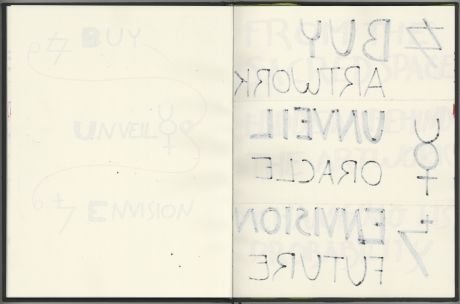 BUY
UNVEIL
ENVISION
BUY
ARTWORK
UNVEIL
ORACLE
ENVISION
FUTURE